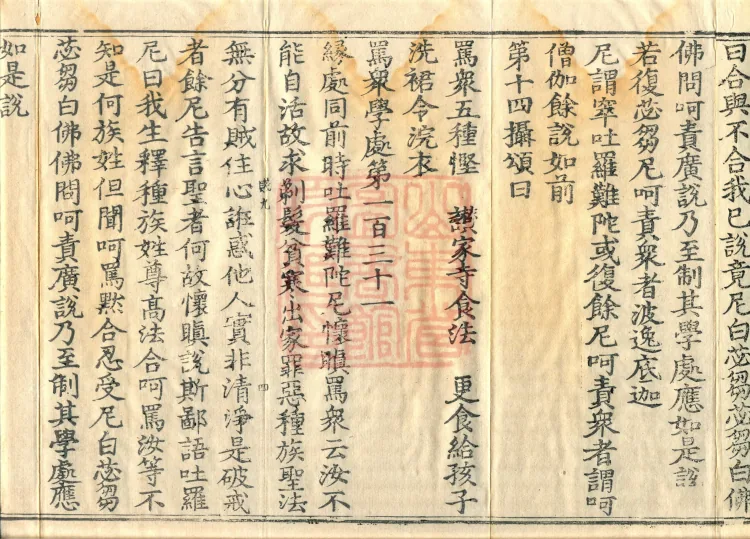 曰合與不合我已說竟尼白苾芻苾芻白佛
佛問呵責廣說乃至制其學處應如是說
若復苾芻尼呵責衆者波逸底迦
尼謂窣吐羅難陀或復餘尼呵責衆者謂呵
僧伽餘說如前
第十四攝頌曰
罵衆五種慳　讚家寺食法　更食給孩子
洗裙令浣衣
罵衆學處第一百三十一
緣處同前時吐羅難陀尼懷瞋罵衆云汝不
能自活故求剃髮貧寒出家罪惡種族聖法
無分有賊住心誑惑他人實非清淨是破戒
者餘尼告言聖者何故懷瞋說斯鄙語吐羅
尼曰我生釋種族姓尊高法合呵罵汝等不
知是何族姓但聞呵罵默合忍受尼白苾芻
苾芻白佛佛問呵責廣說乃至制其學處應
如是說
四